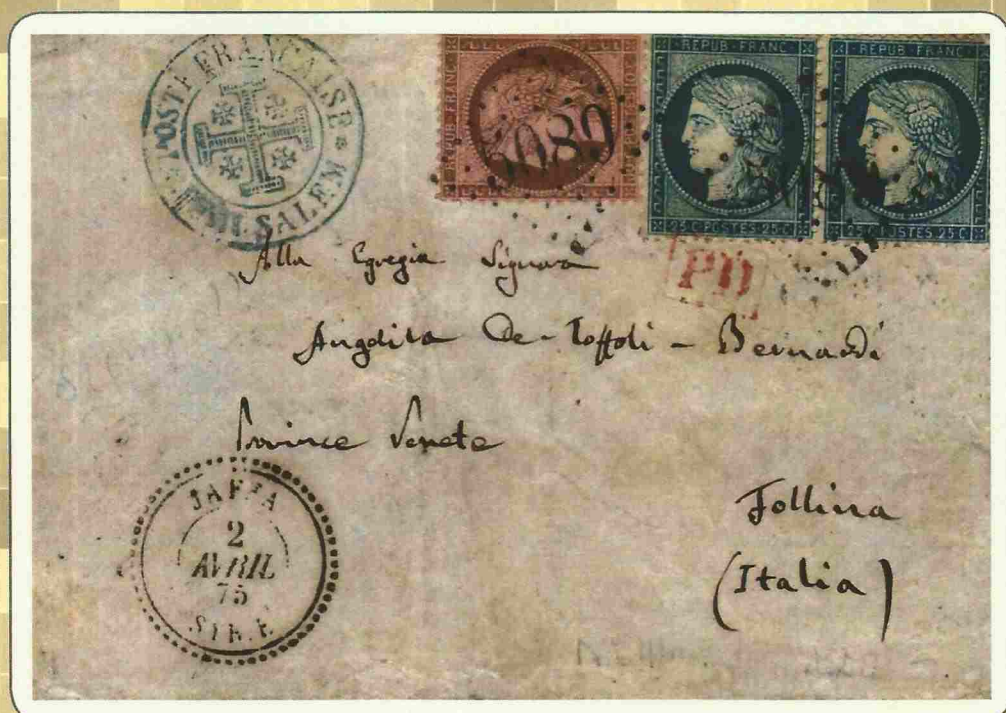 * POSTE FRANÇAISE *
JERUSALEM
REPUB · FRANC
REPUB · FRANC
REPUB · FRANC
5089
25 C · POSTES · 25 C
25 C · POSTES · 25 C
PD
Alla Egregia Signora
Angolita De-Toffoli - Bernardi
Province Venete
Follina
(Italia)
JAFFA
2
AVRIL
75
SYRIE